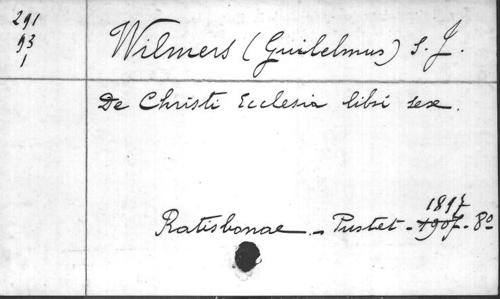 291
93
1
Wilmers (Guilelmus) S. J.
De Christi Ecclesia libri sex.
1897
Ratisbonae - Pustet - 1907 - 8º